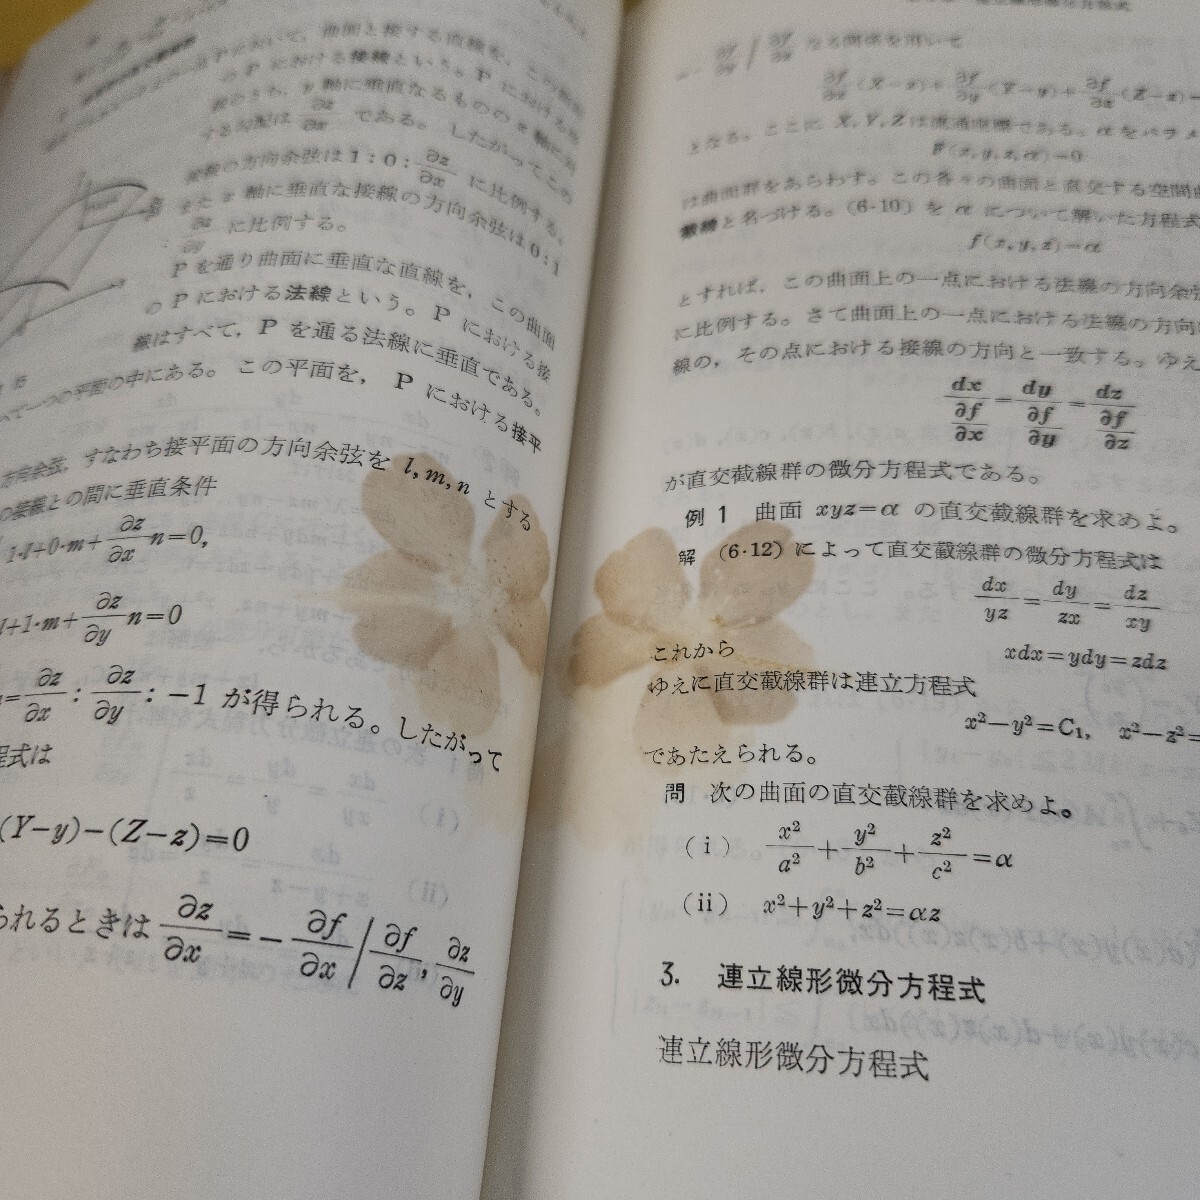 において, 曲面と接する直線を, この曲面
の P における接線という。P における接
線のうち, y 軸に垂直なものの x 軸に対
する勾配は ∂z/∂x である。したがってこの
接線の方向余弦は 1:0:∂z/∂x に比例する。
また x 軸に垂直な接線の方向余弦は 0:1
∂z/∂y に比例する。
P を通り曲面に垂直な直線を, この曲面
の P における法線という。P における接
線はすべて, P を通る法線に垂直である。
べて一つの平面の中にある。この平面を, P における接平
方向余弦, すなわち接平面の方向余弦を l, m, n とする
の接線との間に垂直条件
1·l+0·m+∂z/∂x n=0,
l+1·m+∂z/∂y n=0
=∂z/∂x : ∂z/∂y : −1 が得られる。したがって
程式は
(Y−y)−(Z−z)=0
られるときは ∂z/∂x=−∂f/∂x / ∂f/∂z, ∂z/∂y
∂f/∂y / ∂f/∂z なる関係を用いて
∂f/∂x (X−x)+∂f/∂y (Y−y)+∂f/∂z (Z−z)
となる。ここに X, Y, Z は流通座標である。α をパラメ
F(x, y, z, α)=0
は曲面群をあらわす。この各々の曲面と直交する空間曲
截線と名づける。(6·10) を α について解いた方程式
f(x, y, z)=α
とすれば, この曲面上の一点における法線の方向余弦
に比例する。さて曲面上の一点における法線の方向
線の, その点における接線の方向と一致する。ゆえ
dx/(∂f/∂x)=dy/(∂f/∂y)=dz/(∂f/∂z)
が直交截線群の微分方程式である。
例 1 曲面 xyz=α の直交截線群を求めよ。
解 (6·12) によって直交截線群の微分方程式は
dx/yz=dy/zx=dz/xy
これから
xdx=ydy=zdz
ゆえに直交截線群は連立方程式
x²−y²=C₁, x²−z²=
であたえられる。
問 次の曲面の直交截線群を求めよ。
(i) x²/a²+y²/b²+z²/c²=α
(ii) x²+y²+z²=αz
3. 連立線形微分方程式
連立線形微分方程式